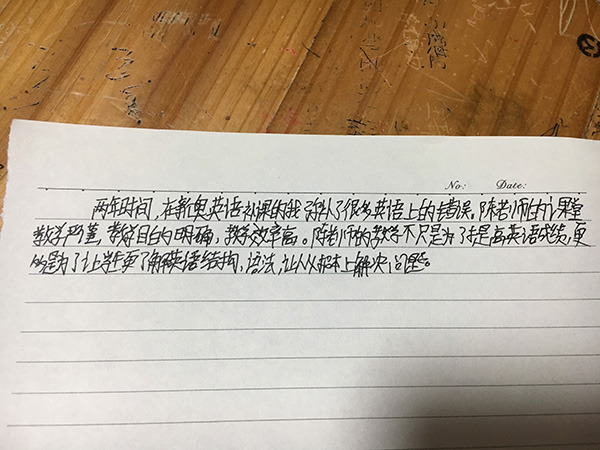 No: Date:
两年时间,在新奥英语补课的我弥补了很多英语上的错误。陈老师的课堂
教学严谨,教学目的明确,教学效率高。陈老师的教学不只是为了提高英语成绩,更
的是为了让学生更了解英语结构,语法,让人从根本上解决问题。